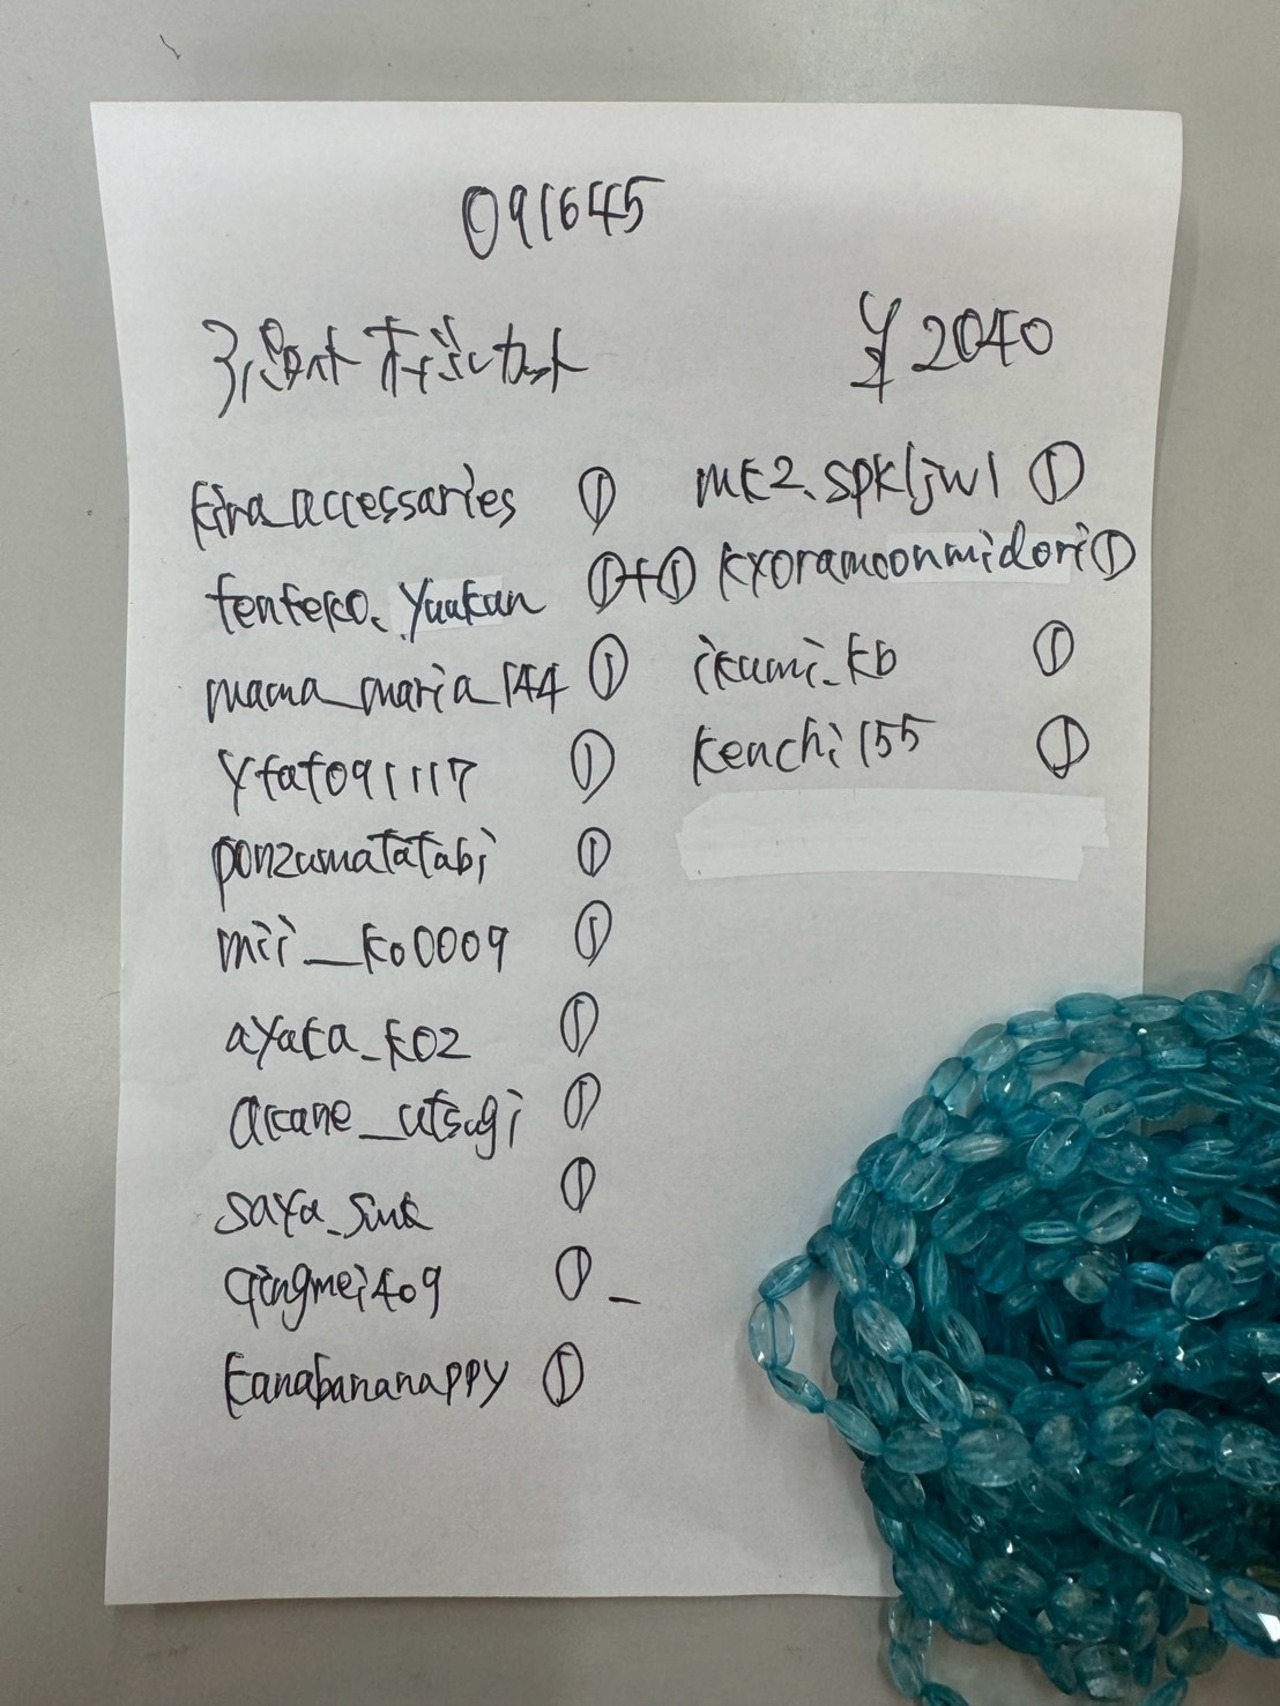 091645
¥2040
kira_accessaries ①
tenteko.yuukun ①+①
mama_maria_144 ①
ytat091117 ①
ponzumatatabi ①
mii__ko0009 ①
ayaka_k02 ①
akane_utsugi ①
saya_sink ①
qingmei409 ① _
kanabananappy ①
mk2.spkljwl ①
kyoramoonmidori ①
ikumi_kb ①
kenchi155 ①